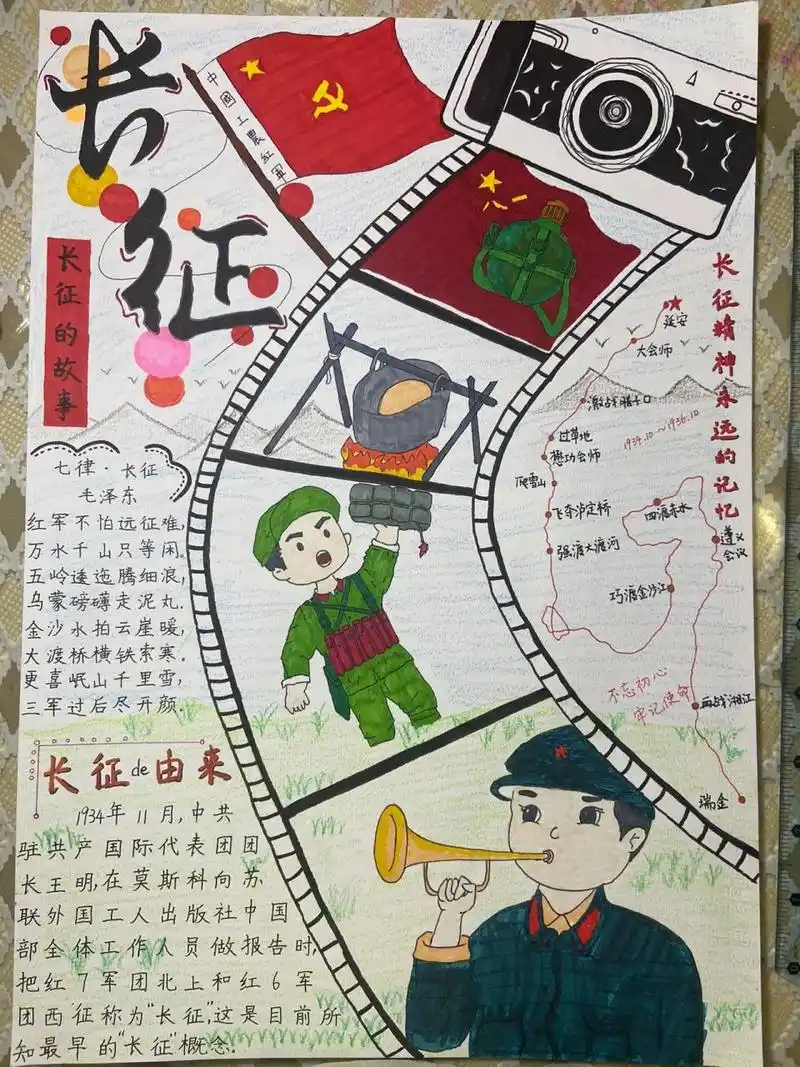 长征
中國工農紅軍
长征的故事
七律·长征
毛泽东
红军不怕远征难,
万水千山只等闲。
五岭逶迤腾细浪,
乌蒙磅礴走泥丸.
金沙水拍云崖暖,
大渡桥横铁索寒。
更喜岷山千里雪,
三军过后尽开颜.
长征de由来
1934年11月,中共
驻共产国际代表团团
长王明,在莫斯科向苏
联外国工人出版社中国
部全体工作人员做报告时,
把红7军团北上和红6军
团西征称为“长征”,这是目前所
知最早的“长征”概念.
长征精神永远的记忆
延安
大会师
激战腊子口
过草地
懋功会师
爬雪山
飞夺泸定桥
强渡大渡河
1934.10~1936.10
四渡赤水
遵义
会议
巧渡金沙江
不忘初心
牢记使命
血战湘江
瑞金